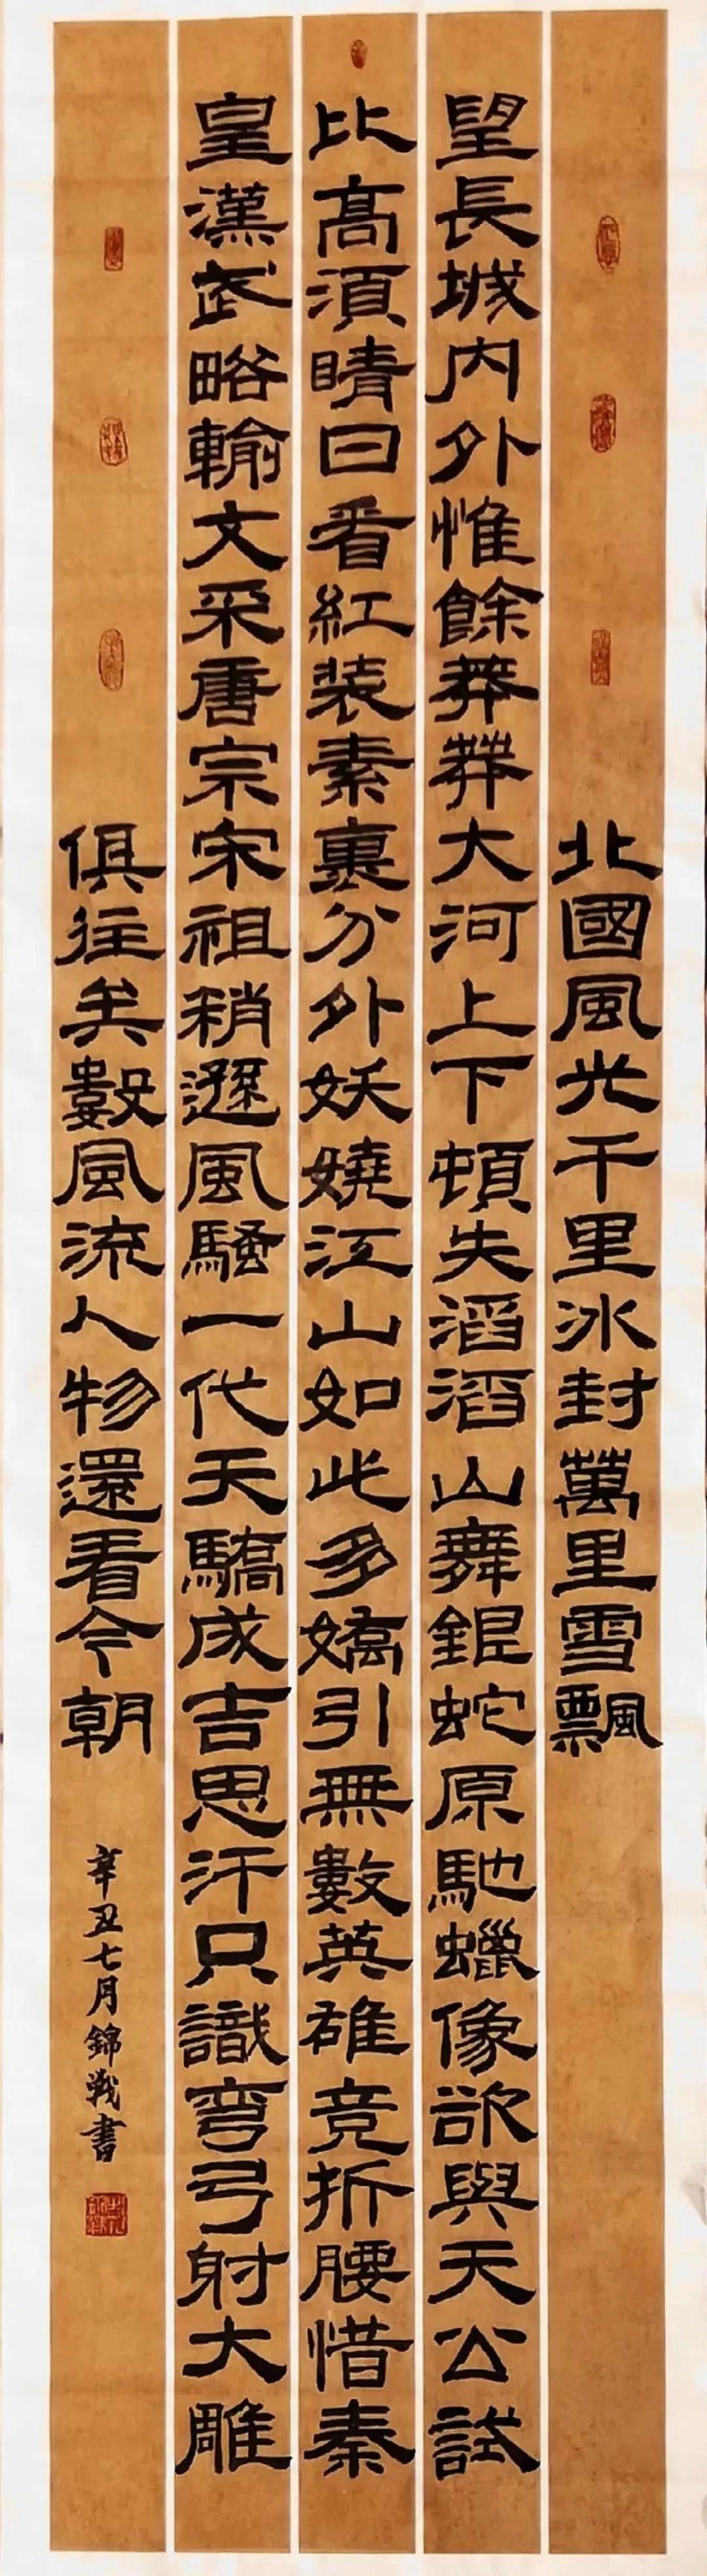 北國風光千里冰封萬里雪飄
望長城内外惟餘莽莽大河上下頓失滔滔山舞銀蛇原馳蠟像欲與天公試
比高須晴日看紅装素裹分外妖嬈江山如此多嬌引無數英雄竞折腰惜秦
皇漢武略輸文采唐宗宋祖稍遜風騷一代天驕成吉思汗只識彎弓射大雕
俱往矣數風流人物還看今朝
辛丑七月錦戰書